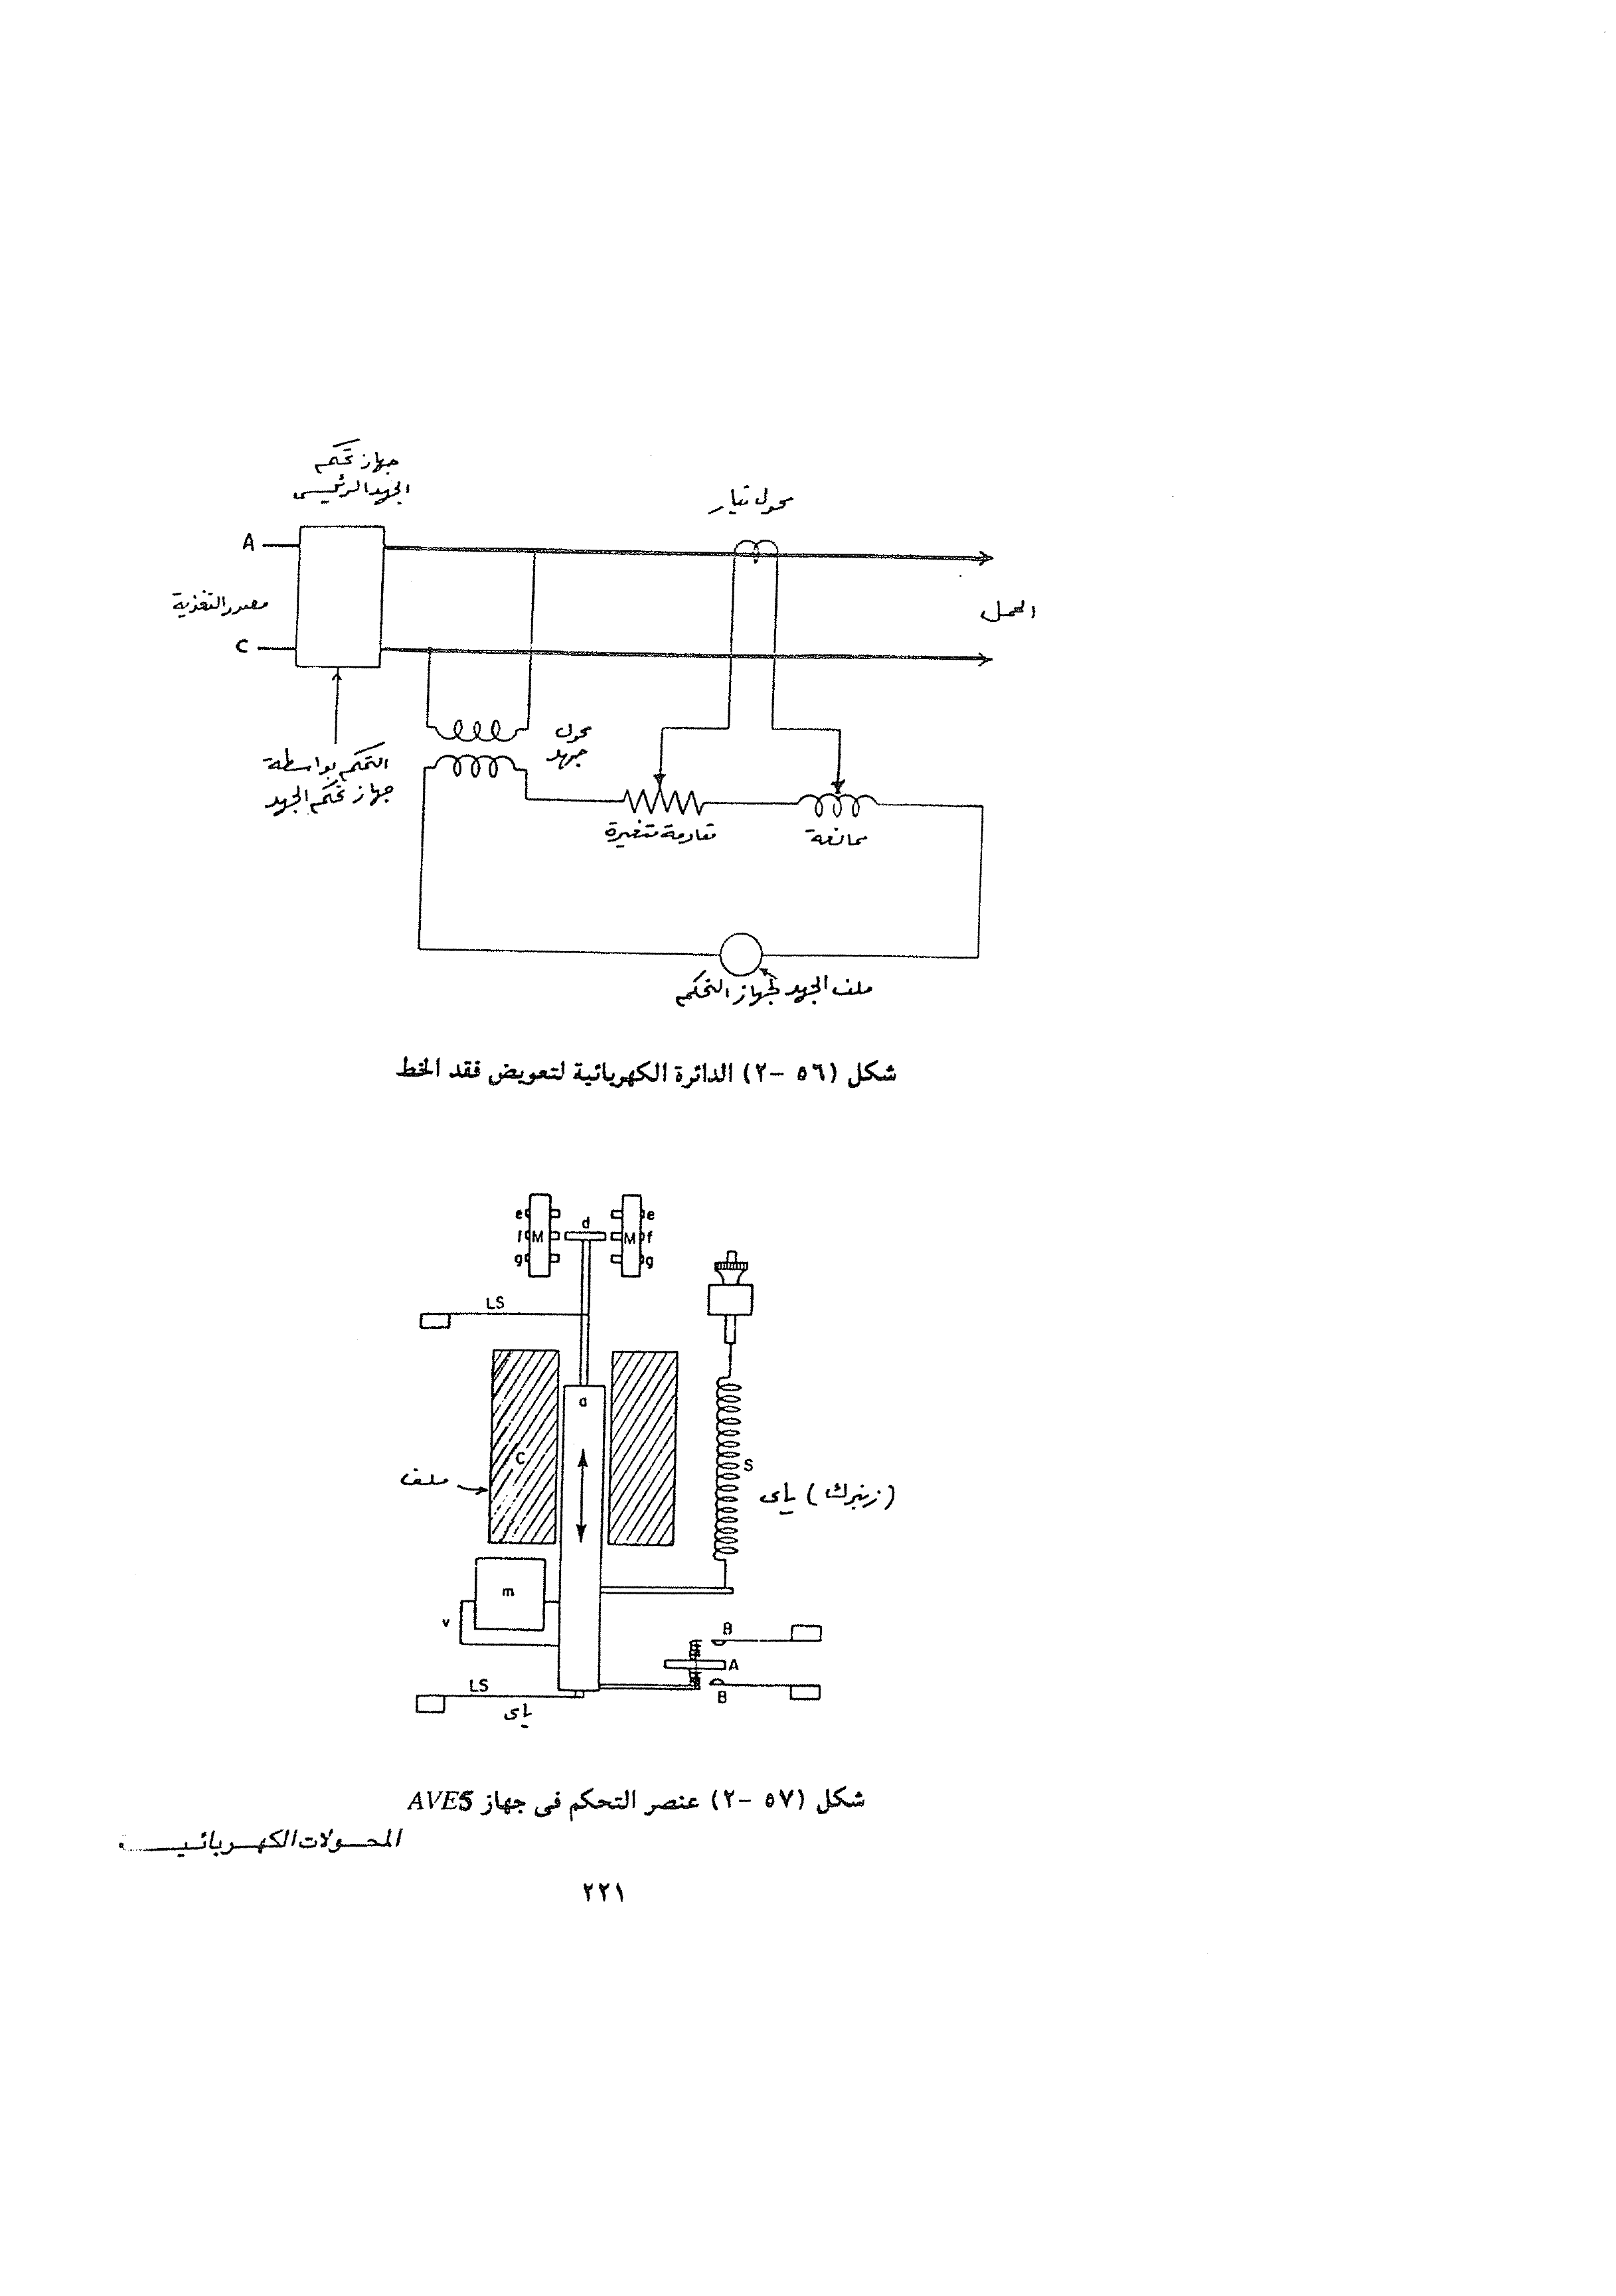 جهاز تحكم
الجهد الرئيسى
محول تيار
A
مصدر التغذية
الحمل
C
محول
جهد
التحكم بواسطة
جهاز تحكم الجهد
مقاومة متغيرة
ممانعة
ملف الجهد لجهاز التحكم
شكل (٥٦ -٢) الدائرة الكهربائية لتعويض فقد الخط
e e
d
f M M f
g g
LS
a
C
S
ملف
(زنبرك) ياى
m
v
B
A
LS
B
ياى
شكل (٥٧ -٢) عنصر التحكم فى جهاز AVE5
المحولات الكهربائية
٢٢١